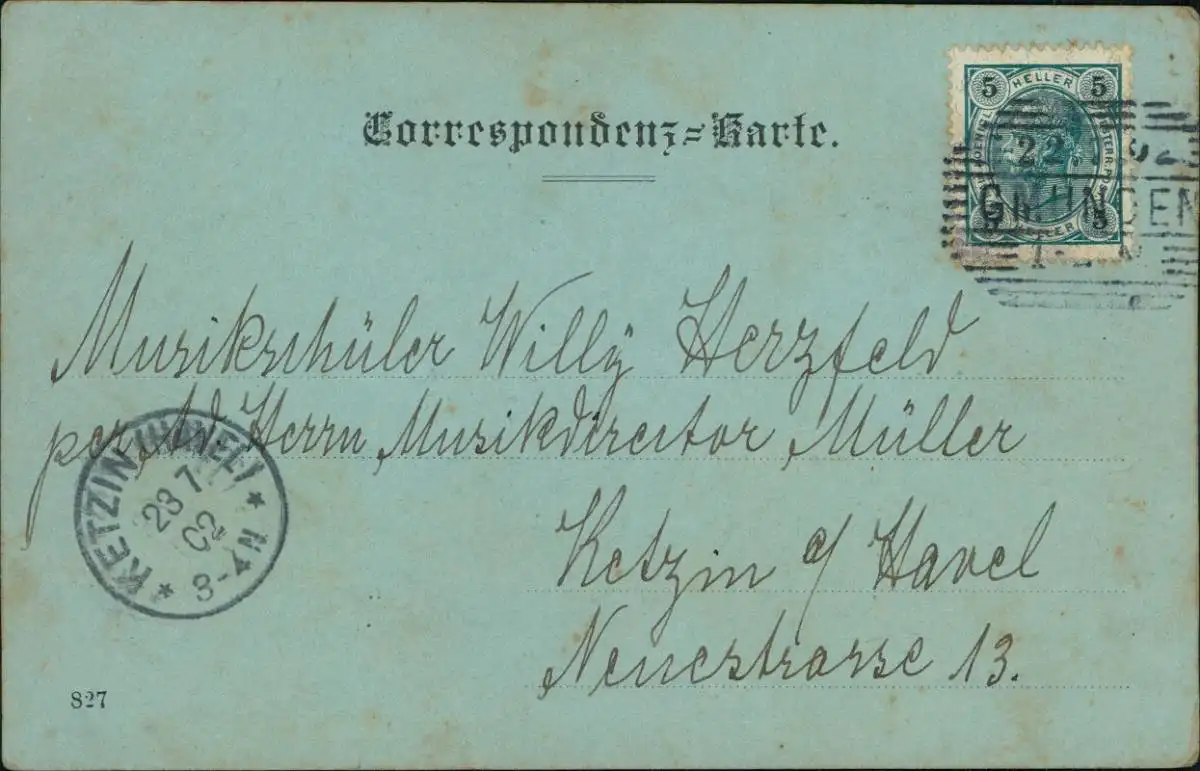 Correspondenz=Karte.
5 HELLER 5
22.
GMUNDEN
5 HELLER 5
Musikschüler Willÿ Herzfeld
per Ad. Herrn Musikdirector Müller
Ketzin a/ Havel
Neuestrasse 13.
* KETZIN (HAVEL) *
23 7
02
3-4N
827